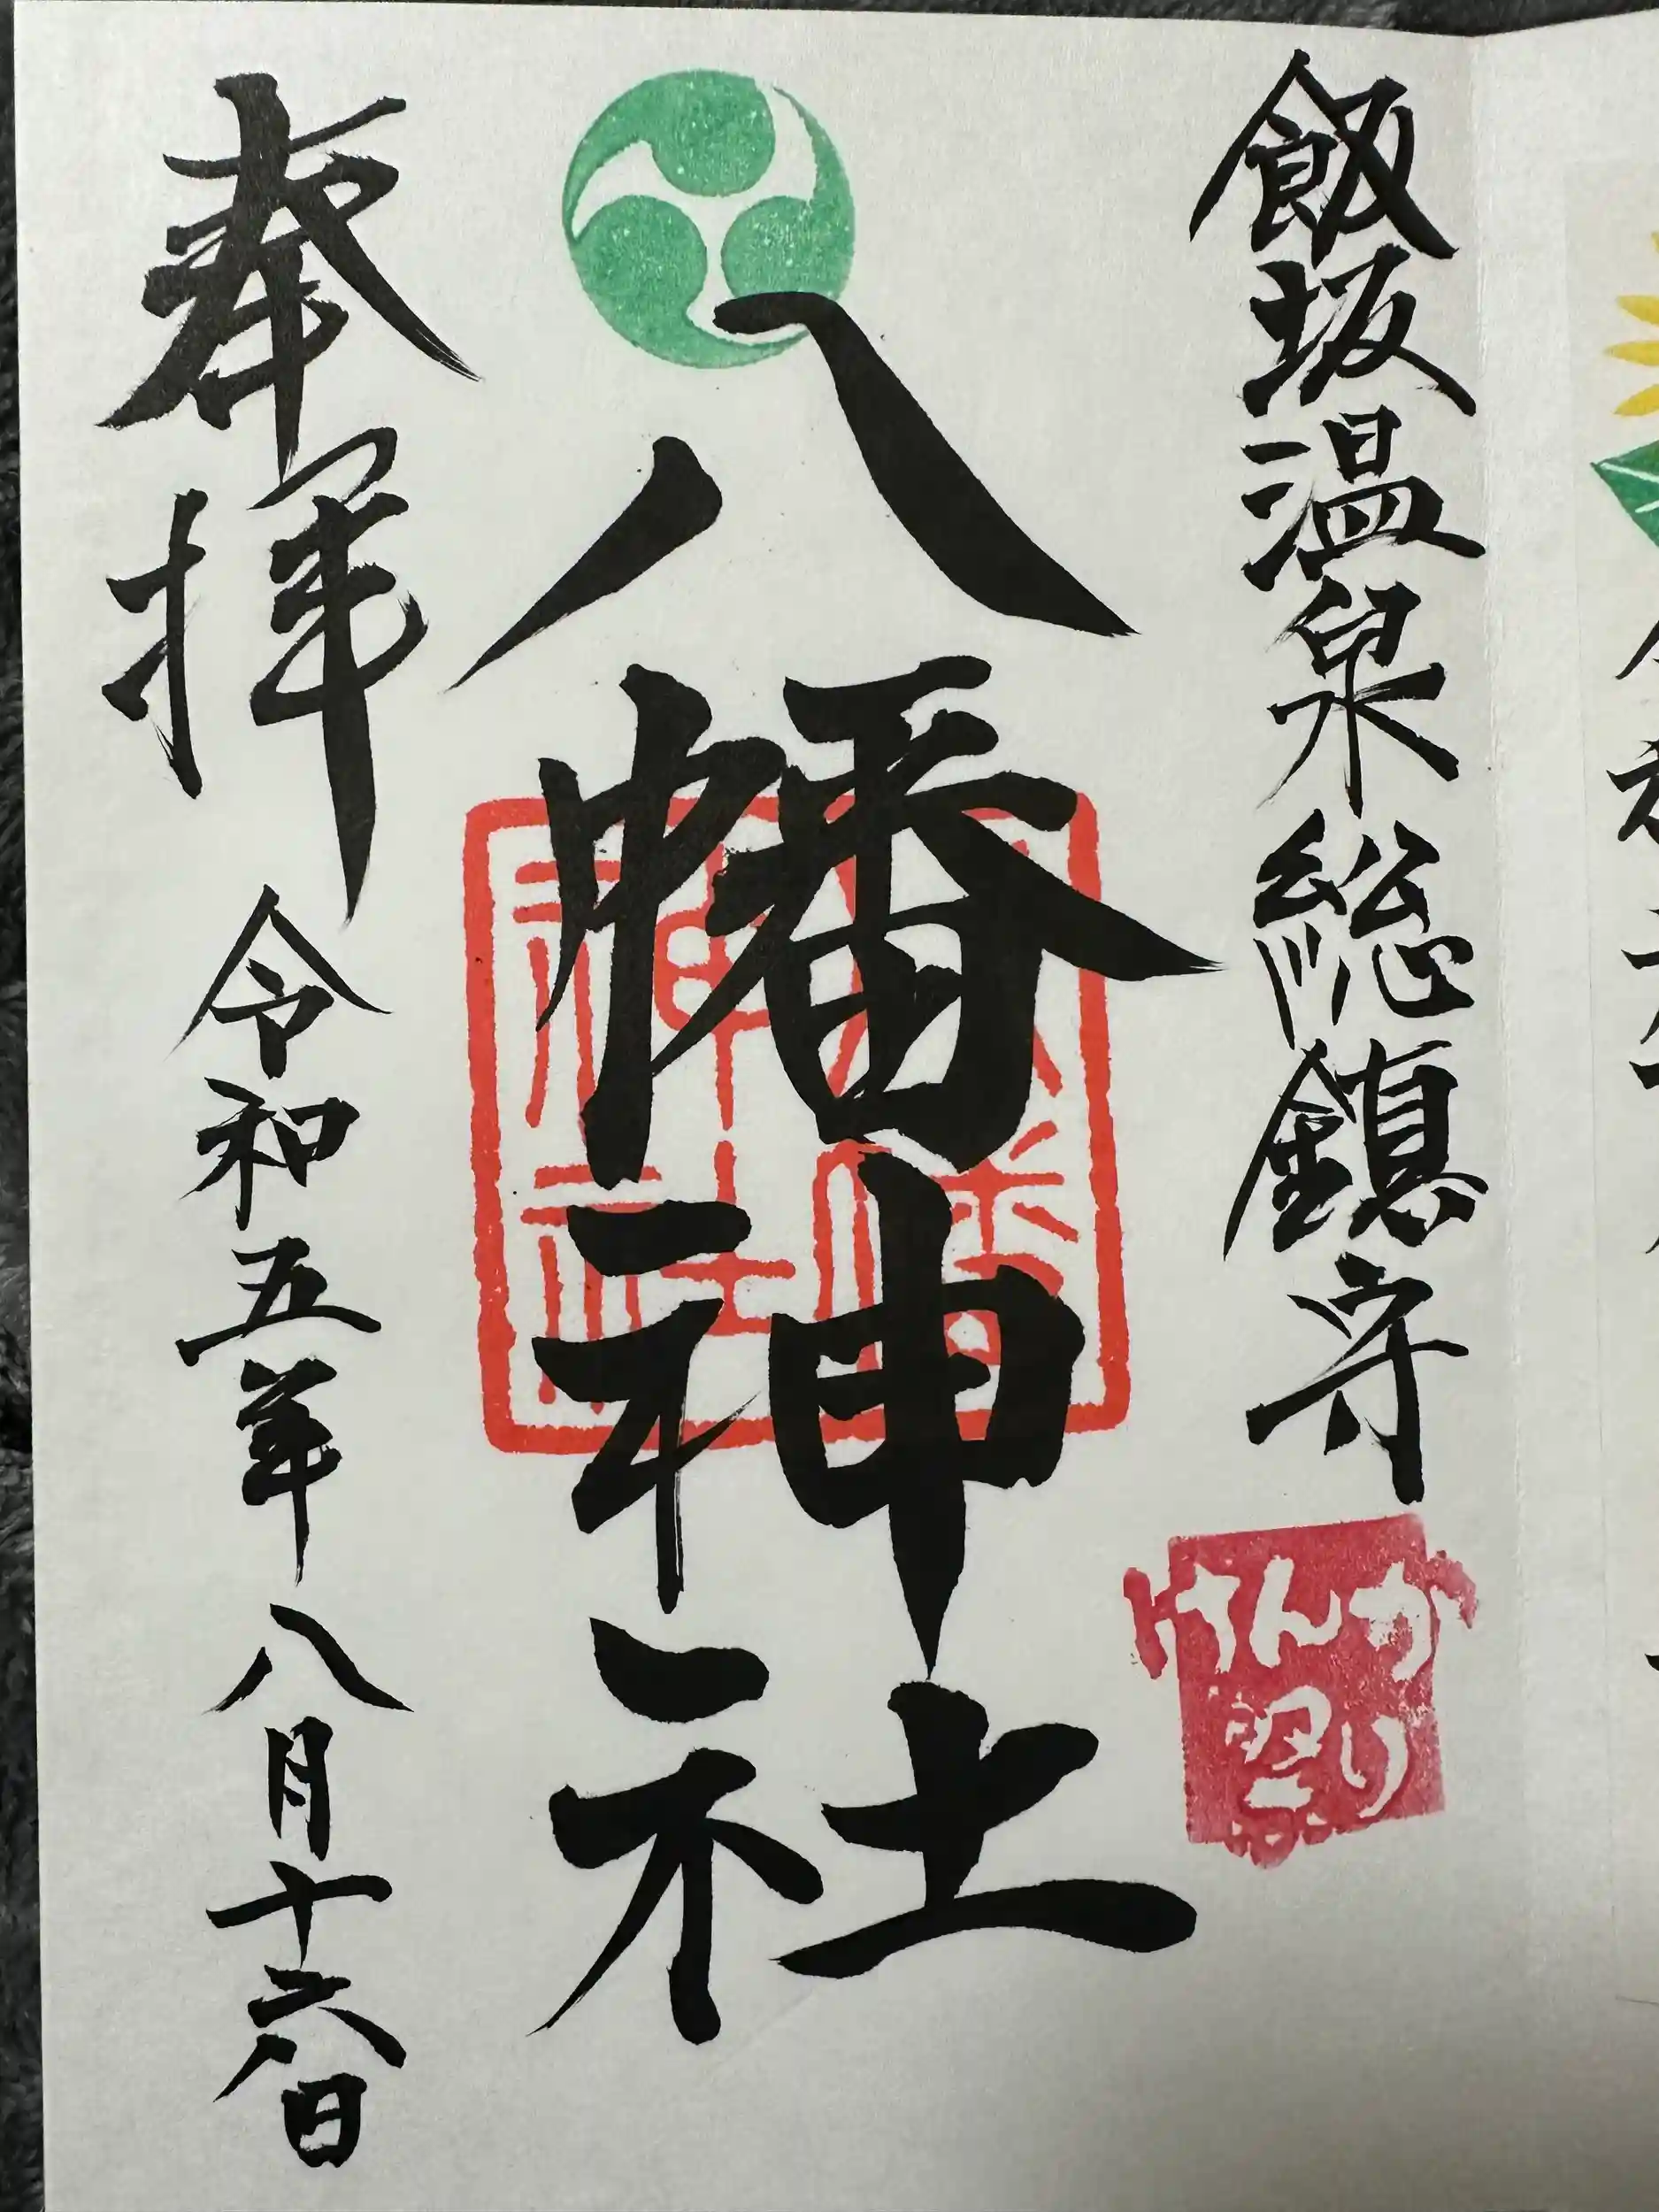 飯坂温泉総鎮守
けんか
祭り
八幡神社
八幡神社
奉拝
令和五年八月十六日